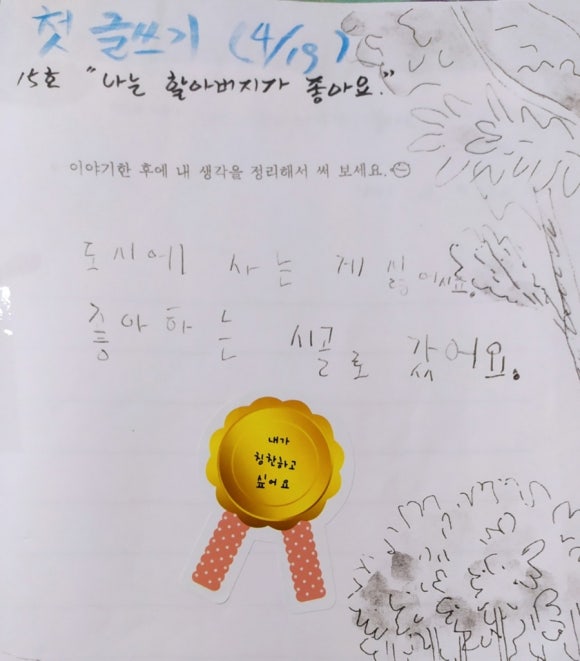 첫 글쓰기 (4/19)
15호 "나는 할아버지가 좋아요."
이야기한 후에 내 생각을 정리해서 써 보세요.
도시에 사는 게 싫어서요.
좋아하는 시골로 갔어요.
내가
칭찬하고
싶어요